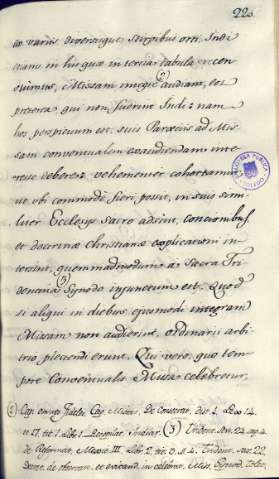 220
ex variis, diversisque stirpibus orti, Indi
etiam in lingua in tertia tabula
Missam integrè audiant, eos
præterea qui non fuerint Indi: nam
hos perspicuum est, suis Parœciis ad Mis-
sam conventualem exaudiendam inte-
resse debere: vehementer cohortamur
ut ubi commodè fieri possit, in suis simi-
liter Ecclesiis sacro adsint, concionibus,
et doctrinæ christianæ explicationi in-
tersint, quemadmodum à Sacra Tri-
dentina (3) Synodo injunctum est. Quod
si aliqui in diebus ejusmodi integram
Missam non audierint, ordinarii arbi-
trio plectendi erunt. Qui vero, quo tem-
pore Conventualis Missa celebretur,
(2) Cap. Missas, De Consecrat. dist. 1.
et 17. tit. 1. lib. 1. Recopilat. Indiar. (3) Trident. ses. 22.
de Reformat. Mexic. III. lib. 2. tit. 3. § 4. Trident. ses. 22.
Decret. de observan. et evitand. in celebrat. Miss.